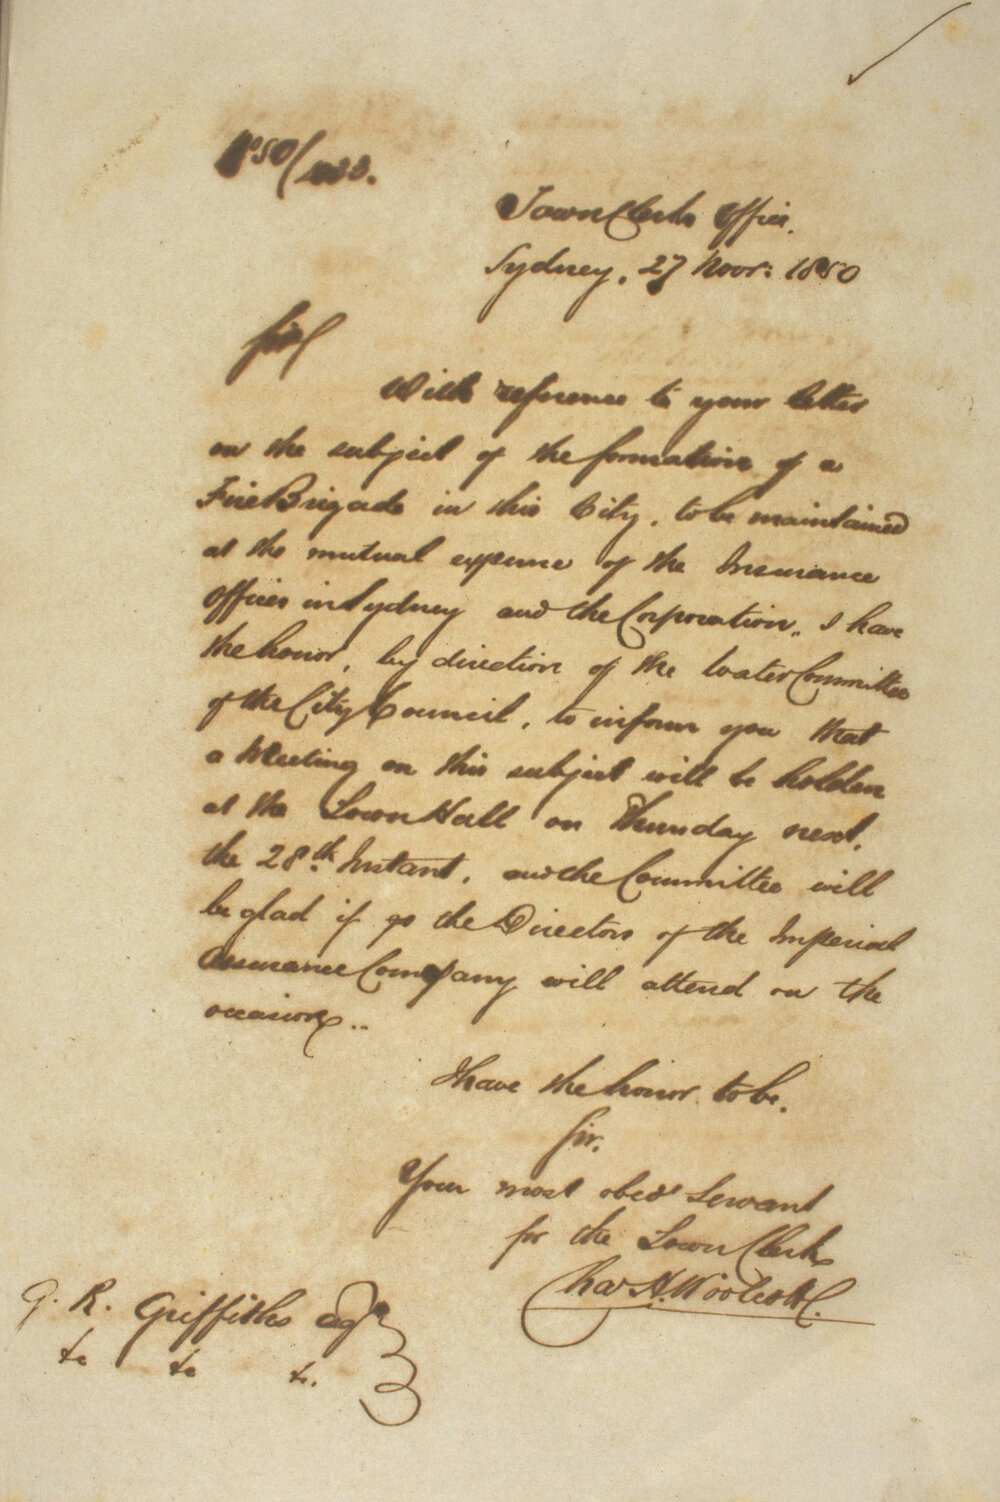 No 50/1033.
Town Clerks Office.
Sydney, 27 Novr: 1850
Sir
With reference to your letter
on the subject of the formation of a
Fire Brigade in this City, to be maintained
at the mutual expense of the Insurance
Offices in Sydney and the Corporation, I have
the honor, by direction of the Water Committee
of the City Council, to inform you that
a Meeting on this subject will be holden
at the Town Hall on Thursday next,
the 28th Instant, and the Committee will
be glad if you the Directors of the Imperial
Assurance Company will attend on the
occasion..
I have the honor to be,
Sir,
Your most obedt Servant
for the Town Clerk
Chas H. Woolcott.
G. R. Griffiths Esqr
&c &c &c.